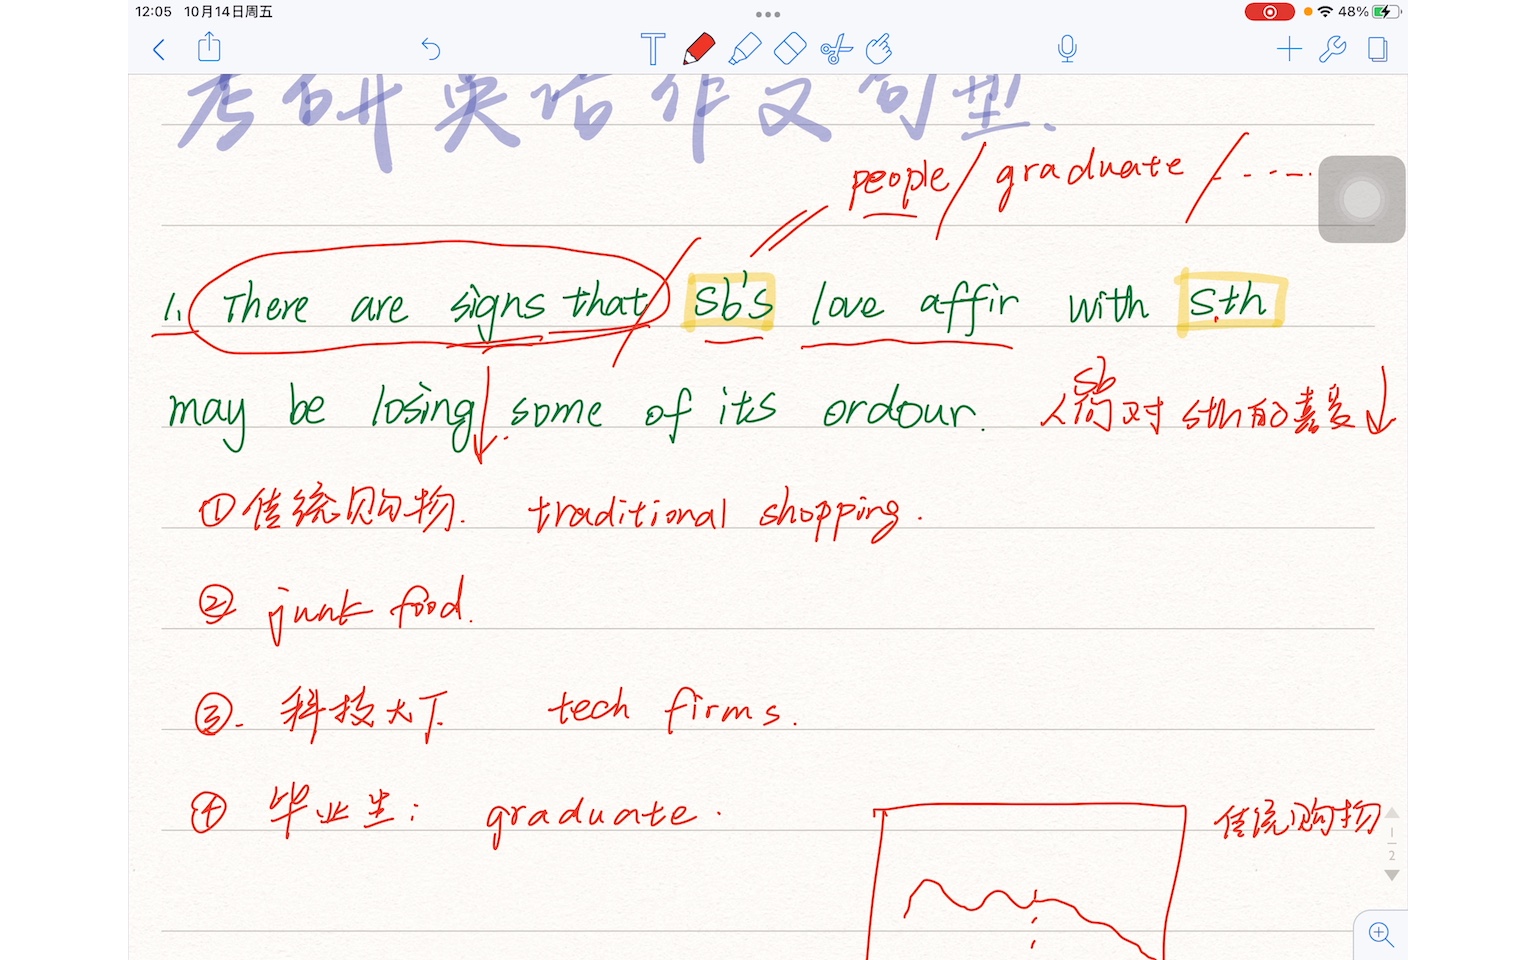 12:05 10月14日周五
48%
考研英语作文句型.
people/graduate/.....
1. There are signs that sb's love affir with s.th
may be losing some of its ordour.
sb
人们对sth的喜爱↓
①传统购物. traditional shopping.
② junk food.
③. 科技大下 tech firms.
④ 毕业生: graduate.
传统购物
1
2